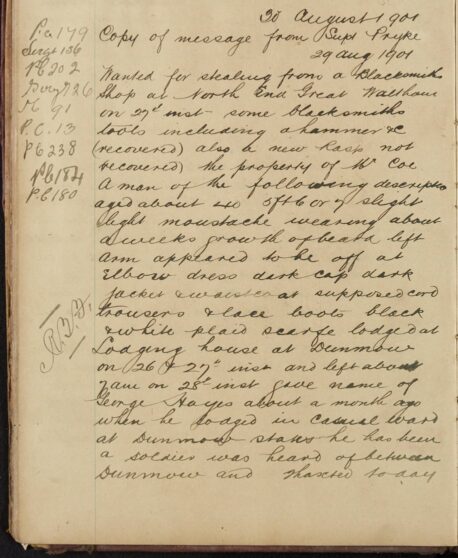 30 August 1901
Copy of message from Supt Pryke
29 Aug 1901
Wanted for stealing from a Blacksmiths
Shop at North End Great Waltham
on 27th inst some blacksmiths
tools including a hammer &c
(recovered) also a new Rasp not
recovered) the property of Mr Coe
A man of the following description
aged about 40 5ft 6 or 7 slight
light moustache wearing about
a weeks growth of beard left
arm appeared to be off at
Elbow dress dark cap dark
jacket & waistcoat supposed cord
trousers & lace boots black
& white plaid scarfe lodged at
Lodging house at Dunmow
on 26 & 27th inst and left about
7am on 28th inst gave name of
George Hayes about a month ago
when he lodged in casual ward
at Dunmow states he has been
a soldier was heard of between
Dunmow and Thaxted today
P.C. 179
Sergt 136
PC 202
726
91
P.C. 13
PC 238
PC 184
PC 180